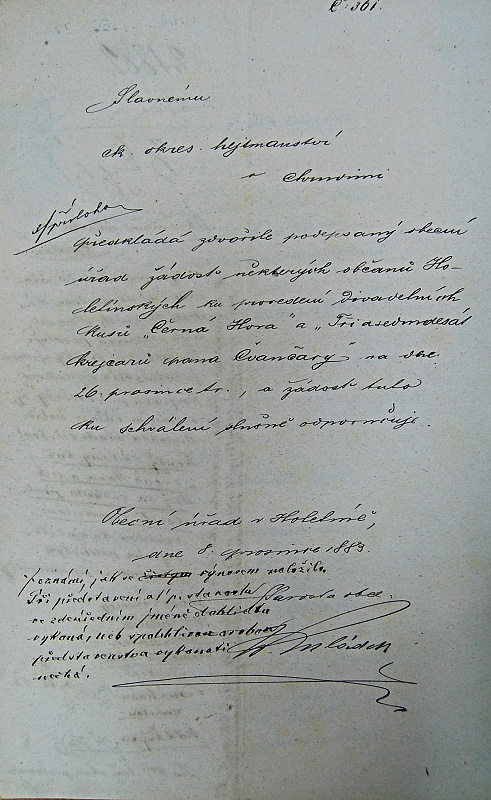 Č. 301.
Slavnému
ck. okres. hejtmanství
v Chrudimi
1/příloha
předkládá zdvořile podepsaný obecní
úřad žádost některých občanů Ho-
letínských ku provedení divadelních
kusů „Černá Hora" a „Tři a sedmdesát
krejcarů pana Čvančary" na dne
26. prosince t. r., a žádost tuto
ku schválení slušně odporučuje.
Obecní úřad v Holetíně,
dne 8. prosince 1883.
Starosta obce.
jak se výnosem naložilo
Při představení starosta
ve zdejším jméně dohlídku
vykoná, neb osobou
představenstva vykonati
nechá.